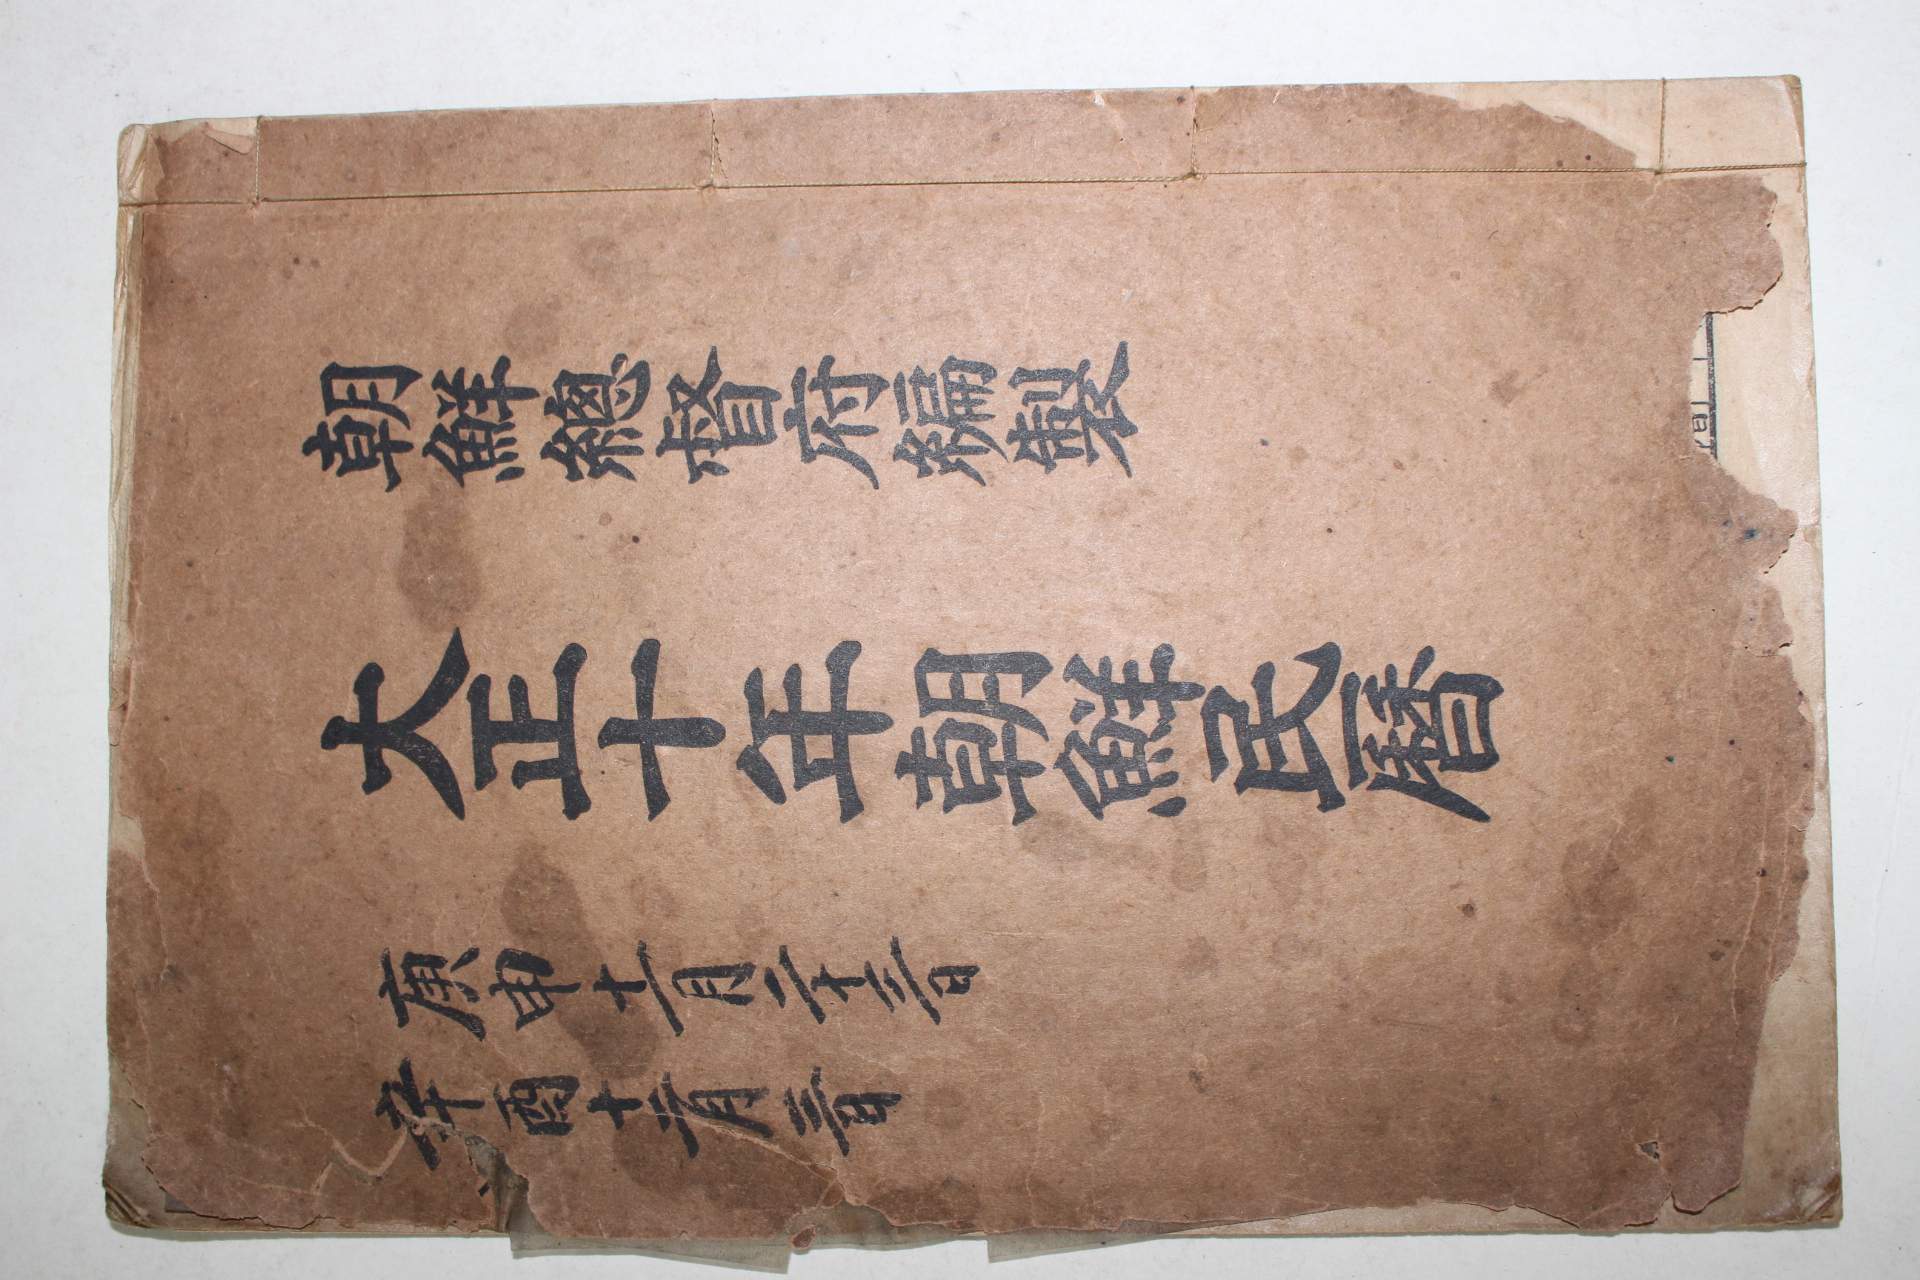 朝鮮總督府編製
大正十年朝鮮民曆
庚申十一月二十三日
辛酉十二月三日